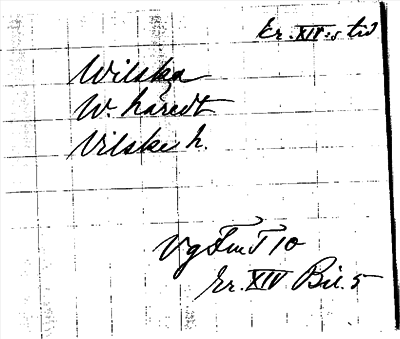 kr. XIV:s tid
Wilska
W. häredt
Vilske h.
VgFmT 10
kr. XIV Bil. 5